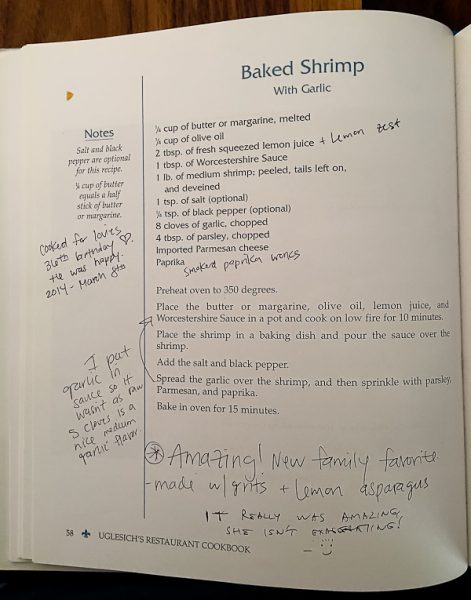 Baked Shrimp
With Garlic
Notes
Salt and black
pepper are optional
for this recipe.
¼ cup of butter
equals a half
stick of butter
or margarine.
Cooked for loves
36th birthday ♡.
He was happy.
2014 - March 8th
I put
garlic in
sauce so it
wasn't as raw
5 cloves is a
nice medium
garlic flavor.
¼ cup of butter or margarine, melted
¼ cup of olive oil
2 tbsp. of fresh squeezed lemon juice + Lemon zest
1 tbsp. of Worcestershire Sauce
1 lb. of medium shrimp; peeled, tails left on,
and deveined
1 tsp. of salt (optional)
¼ tsp. of black pepper (optional)
8 cloves of garlic, chopped
4 tbsp. of parsley, chopped
Imported Parmesan cheese
Paprika
smoked paprika works
Preheat oven to 350 degrees.
Place the butter or margarine, olive oil, lemon juice, and
Worcestershire Sauce in a pot and cook on low fire for 10 minutes.
Place the shrimp in a baking dish and pour the sauce over the
shrimp.
Add the salt and black pepper.
Spread the garlic over the shrimp, and then sprinkle with parsley,
Parmesan, and paprika.
Bake in oven for 15 minutes.
Amazing! New family favorite
- made w/ grits + lemon asparagus
IT REALLY WAS AMAZING,
SHE ISN'T EXAGERATING!
58 UGLESICH'S RESTAURANT COOKBOOK